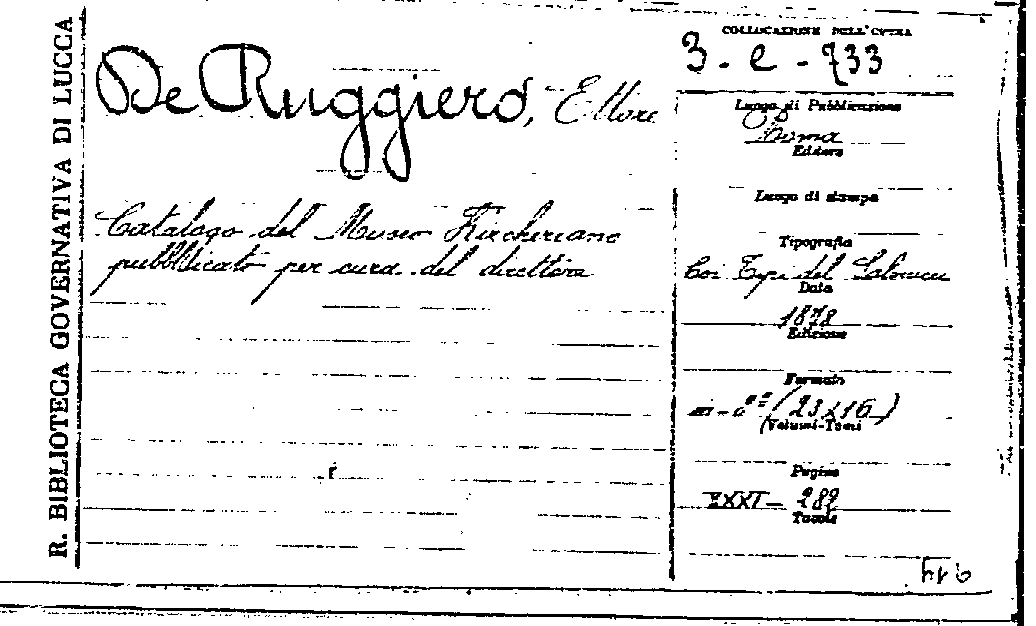 R. BIBLIOTECA GOVERNATIVA DI LUCCA
De Ruggiero, Ettore
Catalogo del Museo Kircheriano
pubblicato per cura del direttore
COLLOCAZIONE DELL'OPERA
3. e - 733
Luogo di Pubblicazione
Roma
Editore
Luogo di stampa
Tipografia
Coi Tipi del Salviucci
Data
1878
Edizione
Formato
in-8º (23x16)
Volumi-Tomi
Pagine
XXXI - 287
Tavole